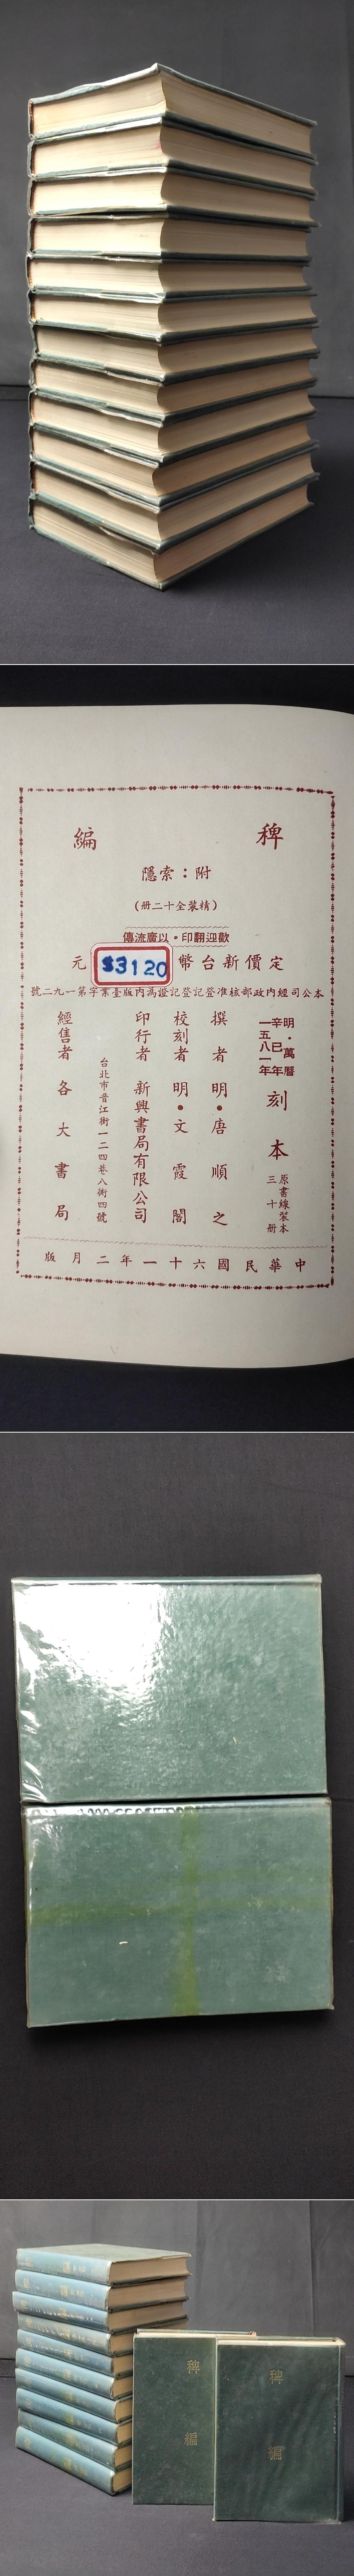 稗編
附：索隱
（精裝全十二冊）
歡迎翻印・以廣流傳
定價新台幣 $3120 元
本公司經內政部核准登記登記證為內版臺業字第一九二號
明・萬曆
辛巳年
一五八一年
刻本
原書線裝本
三十冊
撰者 明・唐順之
校刻者 明・文霞閣
印行者 新興書局有限公司
台北市晉江街一二四巷八衖四號
經售者 各大書局
中華民國六十一年二月版
稗編
稗編